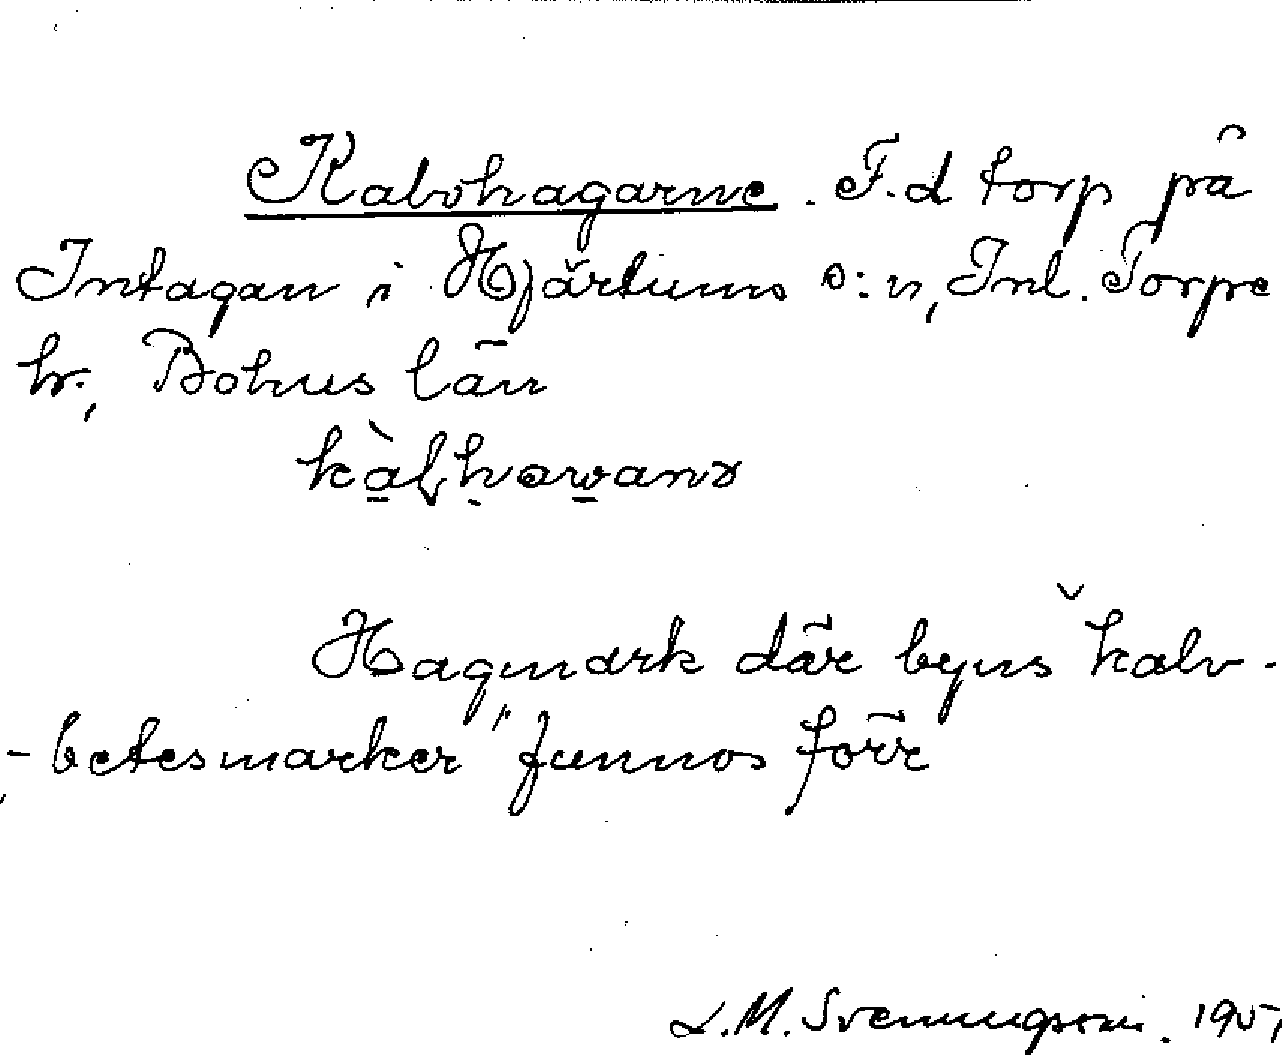 Kalvhagarne. F.d torp på
Intagan i Hjärtums s:n, Inl. Torpe
hr., Bohus län
Hagmark där byns kalv-
-betesmarker funnos förr
L.M. Svenungsson.